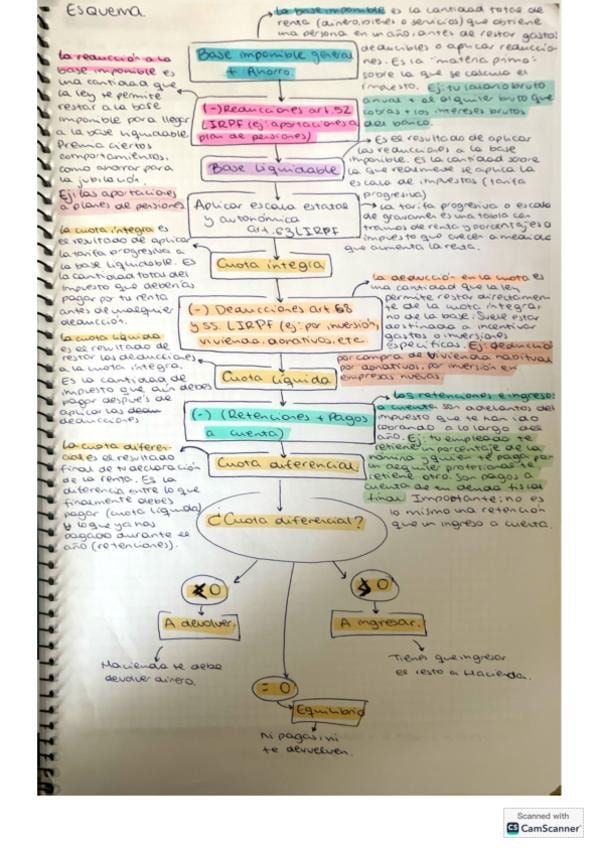 Esquema
la base imponible es la cantidad total de
renta (dinero, bienes o servicios) que obtiene
una persona en un año, antes de restar gastos
deducibles o aplicar reduccio-
nes. Es la "materia prima"
sobre la que se calcula el
impuesto. Ej: tu salario bruto
anual + el alquiler bruto que
cobras + los intereses brutos
del banco.
Base imponible general
+ Ahorro.
la reducción a la
base imponible es
una cantidad que
la ley te permite
restar a la base
imponible para llegar
a la base liquidable.
Premia ciertos
comportamientos,
como ahorrar para
la jubilación.
Ej: las aportaciones
a planes de pensiones
(-) Reducciones art. 52
LIRPF (ej: aportaciones a
plan de pensiones)
Base Liquidable
Es el resultado de aplicar
las reducciones a la base
imponible. Es la cantidad sobre
la que realmente se aplica la
escala de impuestos (tarifa
progresiva)
Aplicar escala estatal
y autonómica
art. 63 LIRPF
la tarifa progresiva o escala
de gravamen es una tabla con
tramos de renta y porcentajes a
impuesto que crecen a medida
que aumenta la renta.
la cuota íntegra es
el resultado de aplicar
la tarifa progresiva a
la base liquidable. Es
la cantidad total del
impuesto que deberías
pagar por tu renta
antes de cualquier
deducción.
Cuota íntegra
(-) Deducciones art. 68
y ss. LIRPF (ej: por inversión,
vivienda, donativos, etc.
la deducción en la cuota es
una cantidad que la ley
permite restar directamen-
te de la cuota íntegra,
no de la base. Suele estar
destinado a incentivar
gastos o inversiones
específicas. Ej: deducción
por compra de vivienda habitual,
por donativos, por inversión en
empresas nuevas
la cuota líquida
es el resultado de
restar las deducciones
a la cuota íntegra.
Es la cantidad de
impuesto que aún debes
pagar después de
aplicar las
deducciones
Cuota líquida
(-) (Retenciones + Pagos
a cuenta)
las retenciones e ingresos
a cuenta son adelantos del
impuesto que te han ido
cobrando a lo largo del
año. Ej: tu empleador te
retiene un porcentaje de la
nómina y quien te paga por
un alquiler profesional te
retiene otro. Son pagos a
cuenta de tu deuda fiscal
final Importante: no es
lo mismo una retención
que un ingreso a cuenta.
la cuota diferen-
cial es el resultado
final de tu declaración
de la renta. Es la
diferencia entre lo que
finalmente debes
pagar (cuota líquida)
y lo que ya has
pagado durante el
año (retenciones).
Cuota diferencial
¿Cuota diferencial?
< 0
A devolver.
Hacienda te debe
devolver dinero.
= 0
Equilibrio
Ni pagas, ni
te devuelven.
> 0
A ingresar.
Tienes que ingresar
el resto a Hacienda.
Scanned with
CS CamScanner